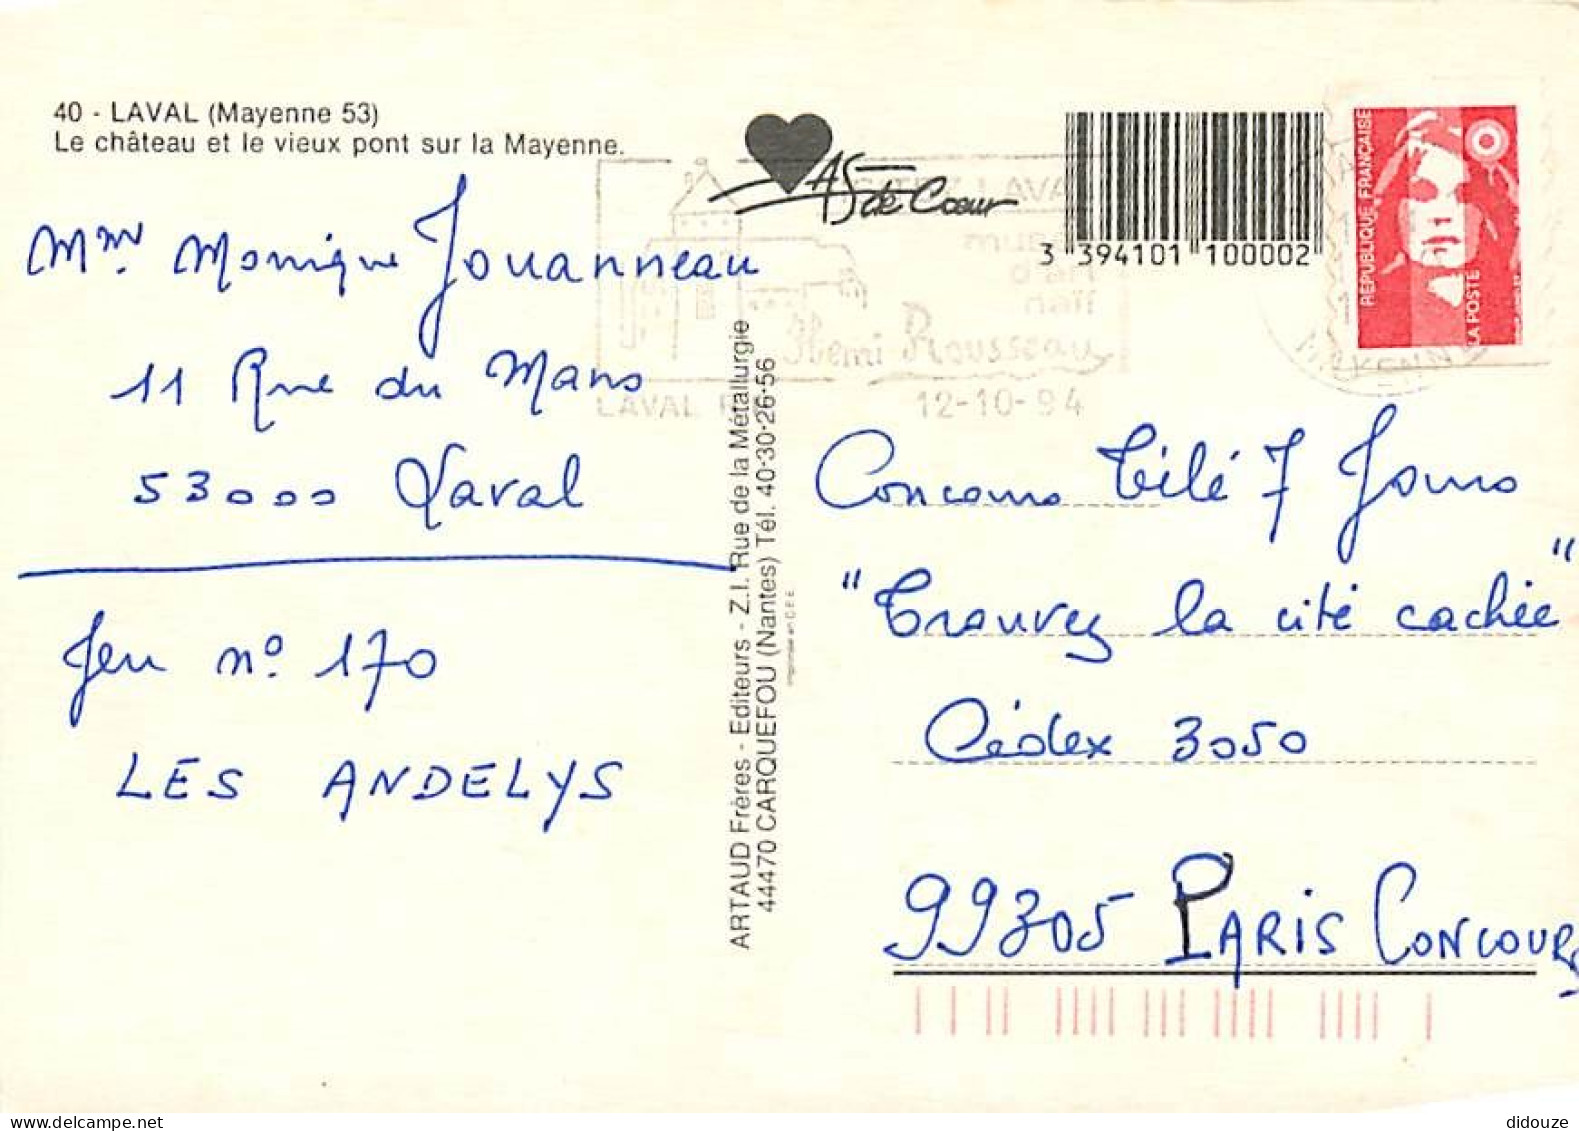 40 - LAVAL (Mayenne 53)
Le château et le vieux pont sur la Mayenne.
Mme Monique Jouanneau
11 Rue du Mans
53000 Laval
Jeu n° 170
LES ANDELYS
ARTAUD Frères - Editeurs - Z.I. Rue de la Métallurgie
44470 CARQUEFOU (Nantes) Tél. 40-30-26-56
AS
de Cœur
LAVAL
musée
d'art
naïf
Henri Rousseau
LAVAL
12-10-94
3 394101 100002
RÉPUBLIQUE FRANÇAISE
LA POSTE
MAYENNE
Concours Télé 7 Jours
"Trouvez la cité cachée"
Cédex 3050
99305 PARIS CONCOURS
delcampe.net
didouze